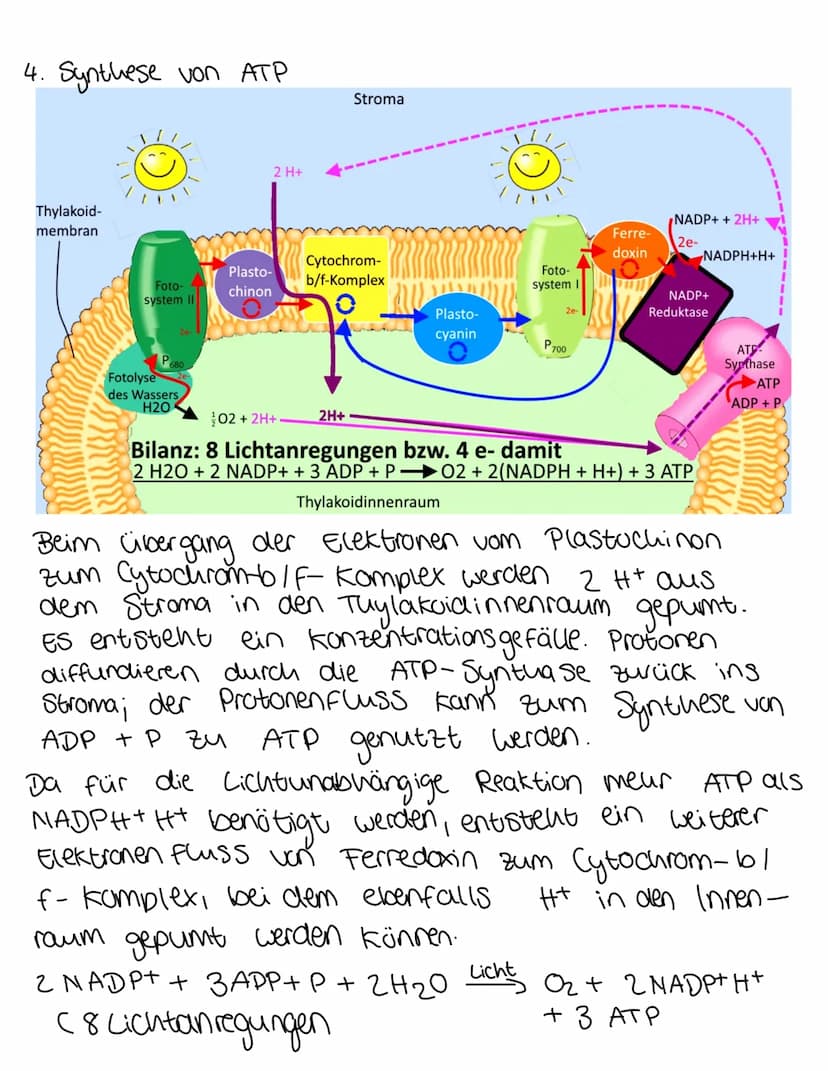 4. Synthese von ATP
Stroma
2 H+
Thylakoid-
membran
NADP+ + 2H+
2e-
NADPH+H+
Ferre-
doxin
Cytochrom-
b/f-Komplex
Plasto-
chinon
Foto-
system II
2e-
Foto-
system I
2e-
NADP+
Reduktase
Plasto-
cyanin
P700
P680
2e-
Fotolyse
des Wassers
H2O
ATP-
Synthase
ATP
ADP + P
½O2 + 2H+
2H+
Bilanz: 8 Lichtanregungen bzw. 4 e- damit
2 H2O + 2 NADP+ + 3 ADP + P → O2 + 2(NADPH + H+) + 3 ATP
Thylakoidinnenraum
Beim übergang der Elektronen vom Plastochinon
zum Cytochrom-b/f- Komplex werden 2 H+ aus
dem Stroma in den Thylakoidinnenraum gepumt.
Es entsteht ein Konzentrationsgefälle. Protonen
diffundieren durch die ATP-Synthase zurück ins
Stroma; der Protonenfluss kann zum Synthese von
ADP + P zu ATP genutzt werden.
Da für die Lichtunabhängige Reaktion mehr ATP als
NADPH+ H+ benötigt werden, entsteht ein weiterer
Elektronenfluss von Ferredoxin zum Cytochrom-b/
f- Komplex, bei dem ebenfalls H+ in den Innen-
raum gepumt werden können.
2 NADP+ + 3ADP+ P + 2H2O Licht→ O2 + 2NADP+H+
(8 Lichtanregungen + 3 ATP